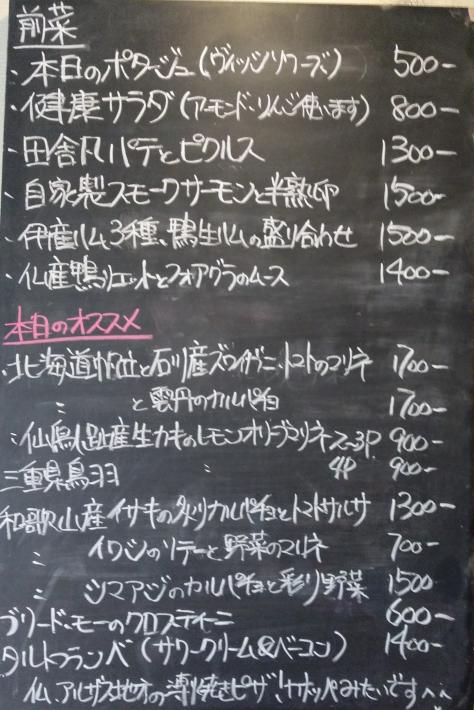 前菜
・本日のポタージュ(ヴィッシソワーズ) 500-
・健康サラダ(アーモンド・りんご使います) 800-
・田舎風パテとピクルス 1300-
・自家製スモークサーモンと半熟卵 1500-
・伊産ハム3種、鴨生ハムの盛り合わせ 1500-
・仏産鴨リエットとフォアグラのムース 1400-
本日のオススメ
・北海道帆立と石川産ズワイガニ、トマトのマリネ 1700-
〃 と雲丹のカルパチョ 1700-
産生カキのレモンオリーブマリネ 2~3P 900-
三重県鳥羽 〃 4P 900-
和歌山産イサキの炙りカルパチョとトマトサルサ 1300-
〃 イワシのソテーと野菜のマリネ 700-
〃 シマアジのカルパチョと彩り野菜 1500
ブリード・モーのクロスティーニ 600-
タルトフランベ(サワークリーム&ベーコン) 1400-
仏、アルザス地方の薄焼きピザ!ナポみたいです^^